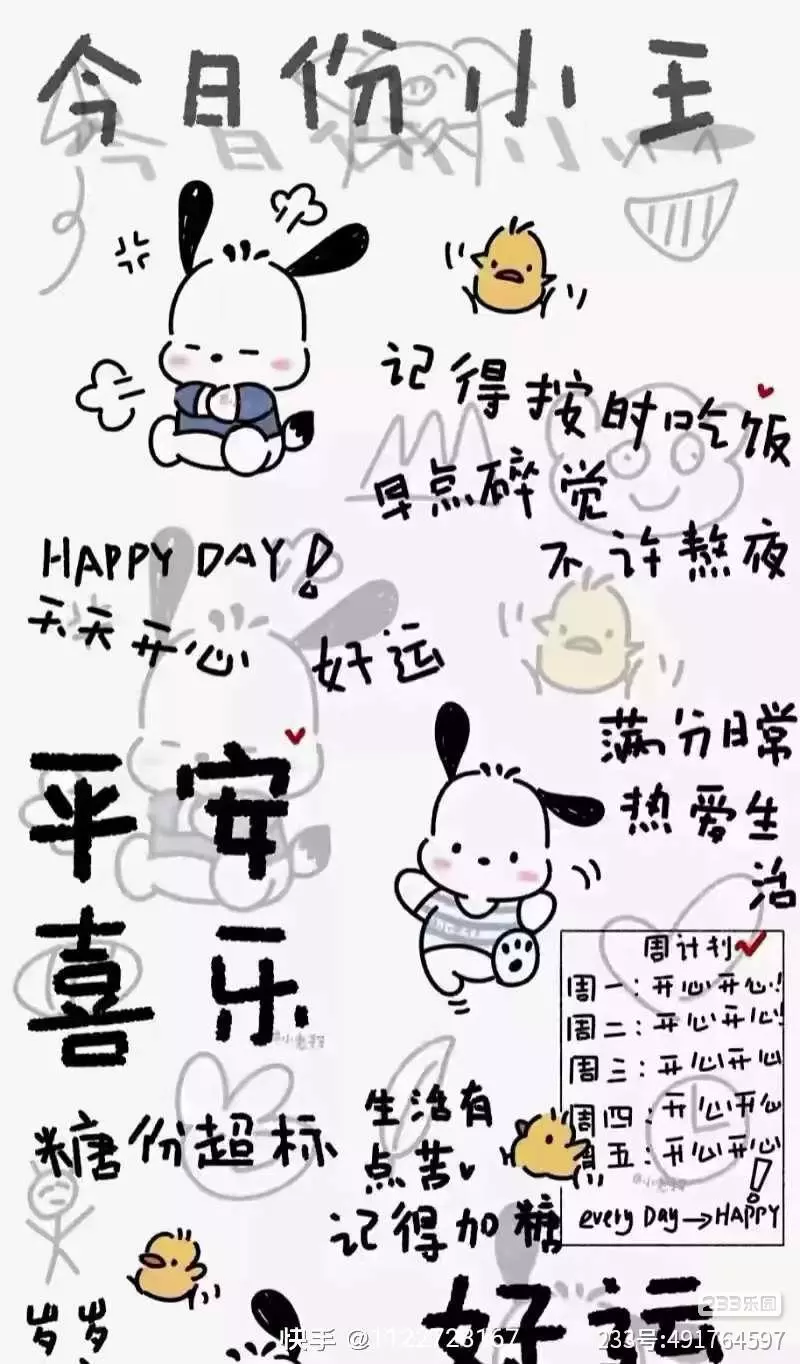 今日份小王
记得按时吃饭
早点碎觉
不许熬夜
HAPPY DAY!
天天开心
好运
平安
喜乐
满分日常
热爱生
活
周计划
周一:开心开心!
周二:开心开心!
周三:开心开心
周四:开心开心
周五:开心开心!
every DAY→HAPPY
糖份超标
生活有
点苦
记得加糖
岁岁
好运
快手 @1122723167
233乐园
233号:491764597